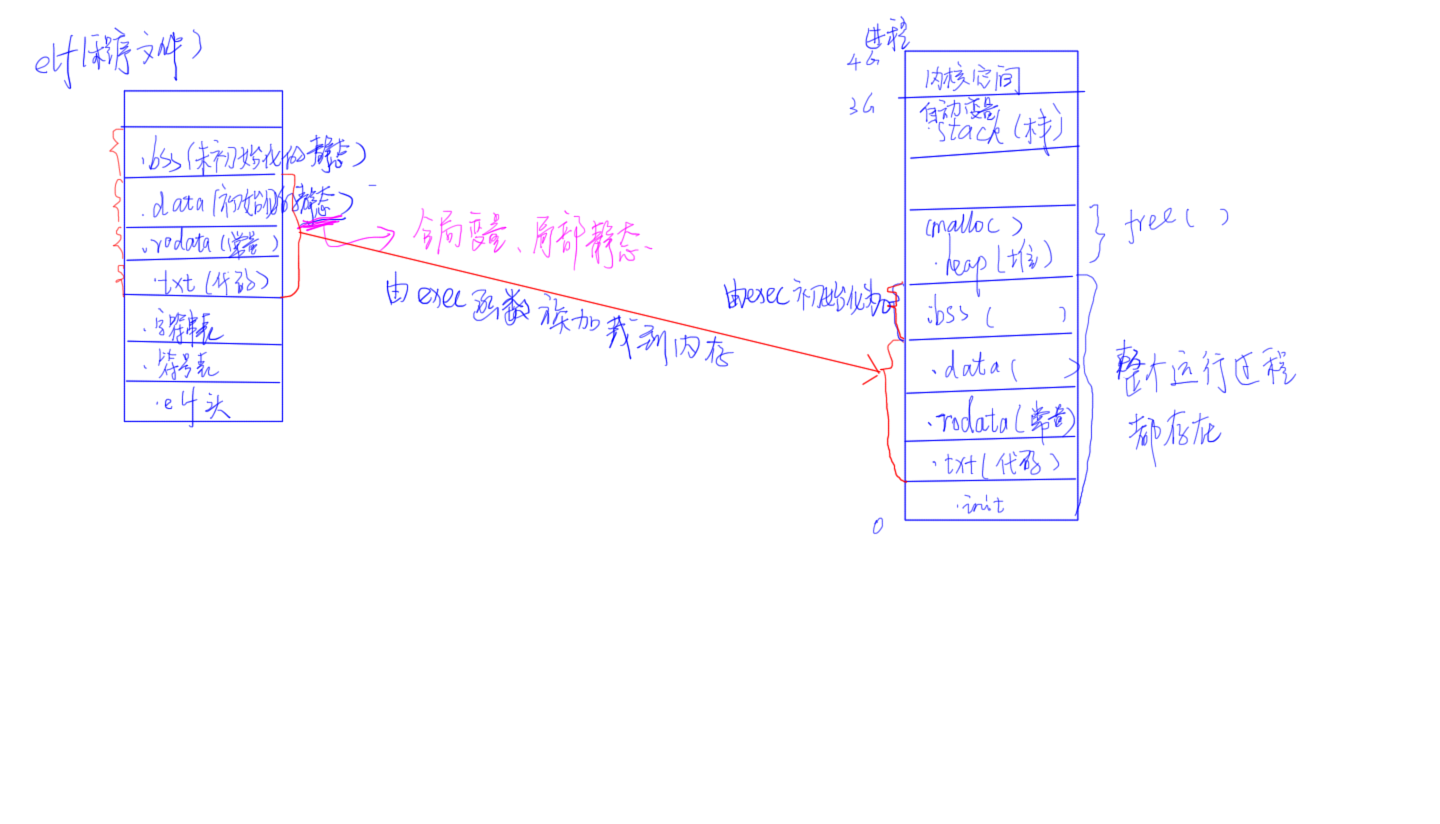 elf(程序文件)
.bss(未初始化的静态)
.data(初始化的静态)
.rodata(常量)
.txt(代码)
.字符串表
.符号表
.elf头
全局变量、局部静态
由exec函数族加载到内存
进程
4G
内核空间
3G
自动变量
.stack(栈)
(malloc)
.heap(堆)
free()
由exec初始化为0
.bss( )
.data( )
.rodata(常量)
.txt(代码)
.init
0
整个运行过程
都存在